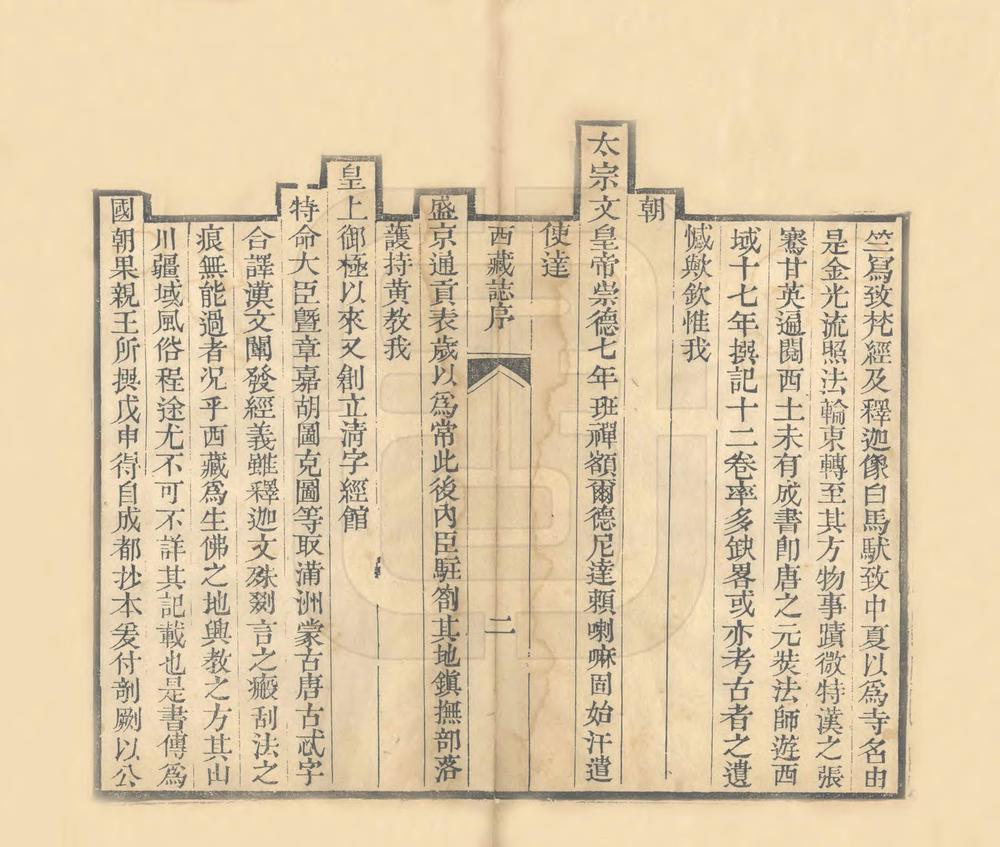 竺寫致梵經及釋迦像白馬馱致中夏以爲寺名由
是金光流照法輪東轉至其方物事蹟微特漢之張
騫甘英遍閱西土未有成書即唐之元奘法師遊西
域十七年撰記十二卷率多缺畧或亦考古者之遺
憾歟欽惟我
朝
太宗文皇帝崇德七年班禪額爾德尼達賴喇嘛固始汗遣
使達
西藏誌序 二
盛京通貢表歲以爲常此後內臣駐劄其地鎮撫部落
護持黃教我
皇上御極以來又創立淸字經館
特命大臣曁章嘉胡圖克圖等取滿洲蒙古唐古忒字
合譯漢文闡發經義雖釋迦文殊剟言之瘢刮法之
痕無能過者况乎西藏爲生佛之地與教之方其山
川疆域風俗程途尤不可不詳其記載也是書傳爲
國朝果親王所撰戊申得自成都抄本爰付剞劂以公